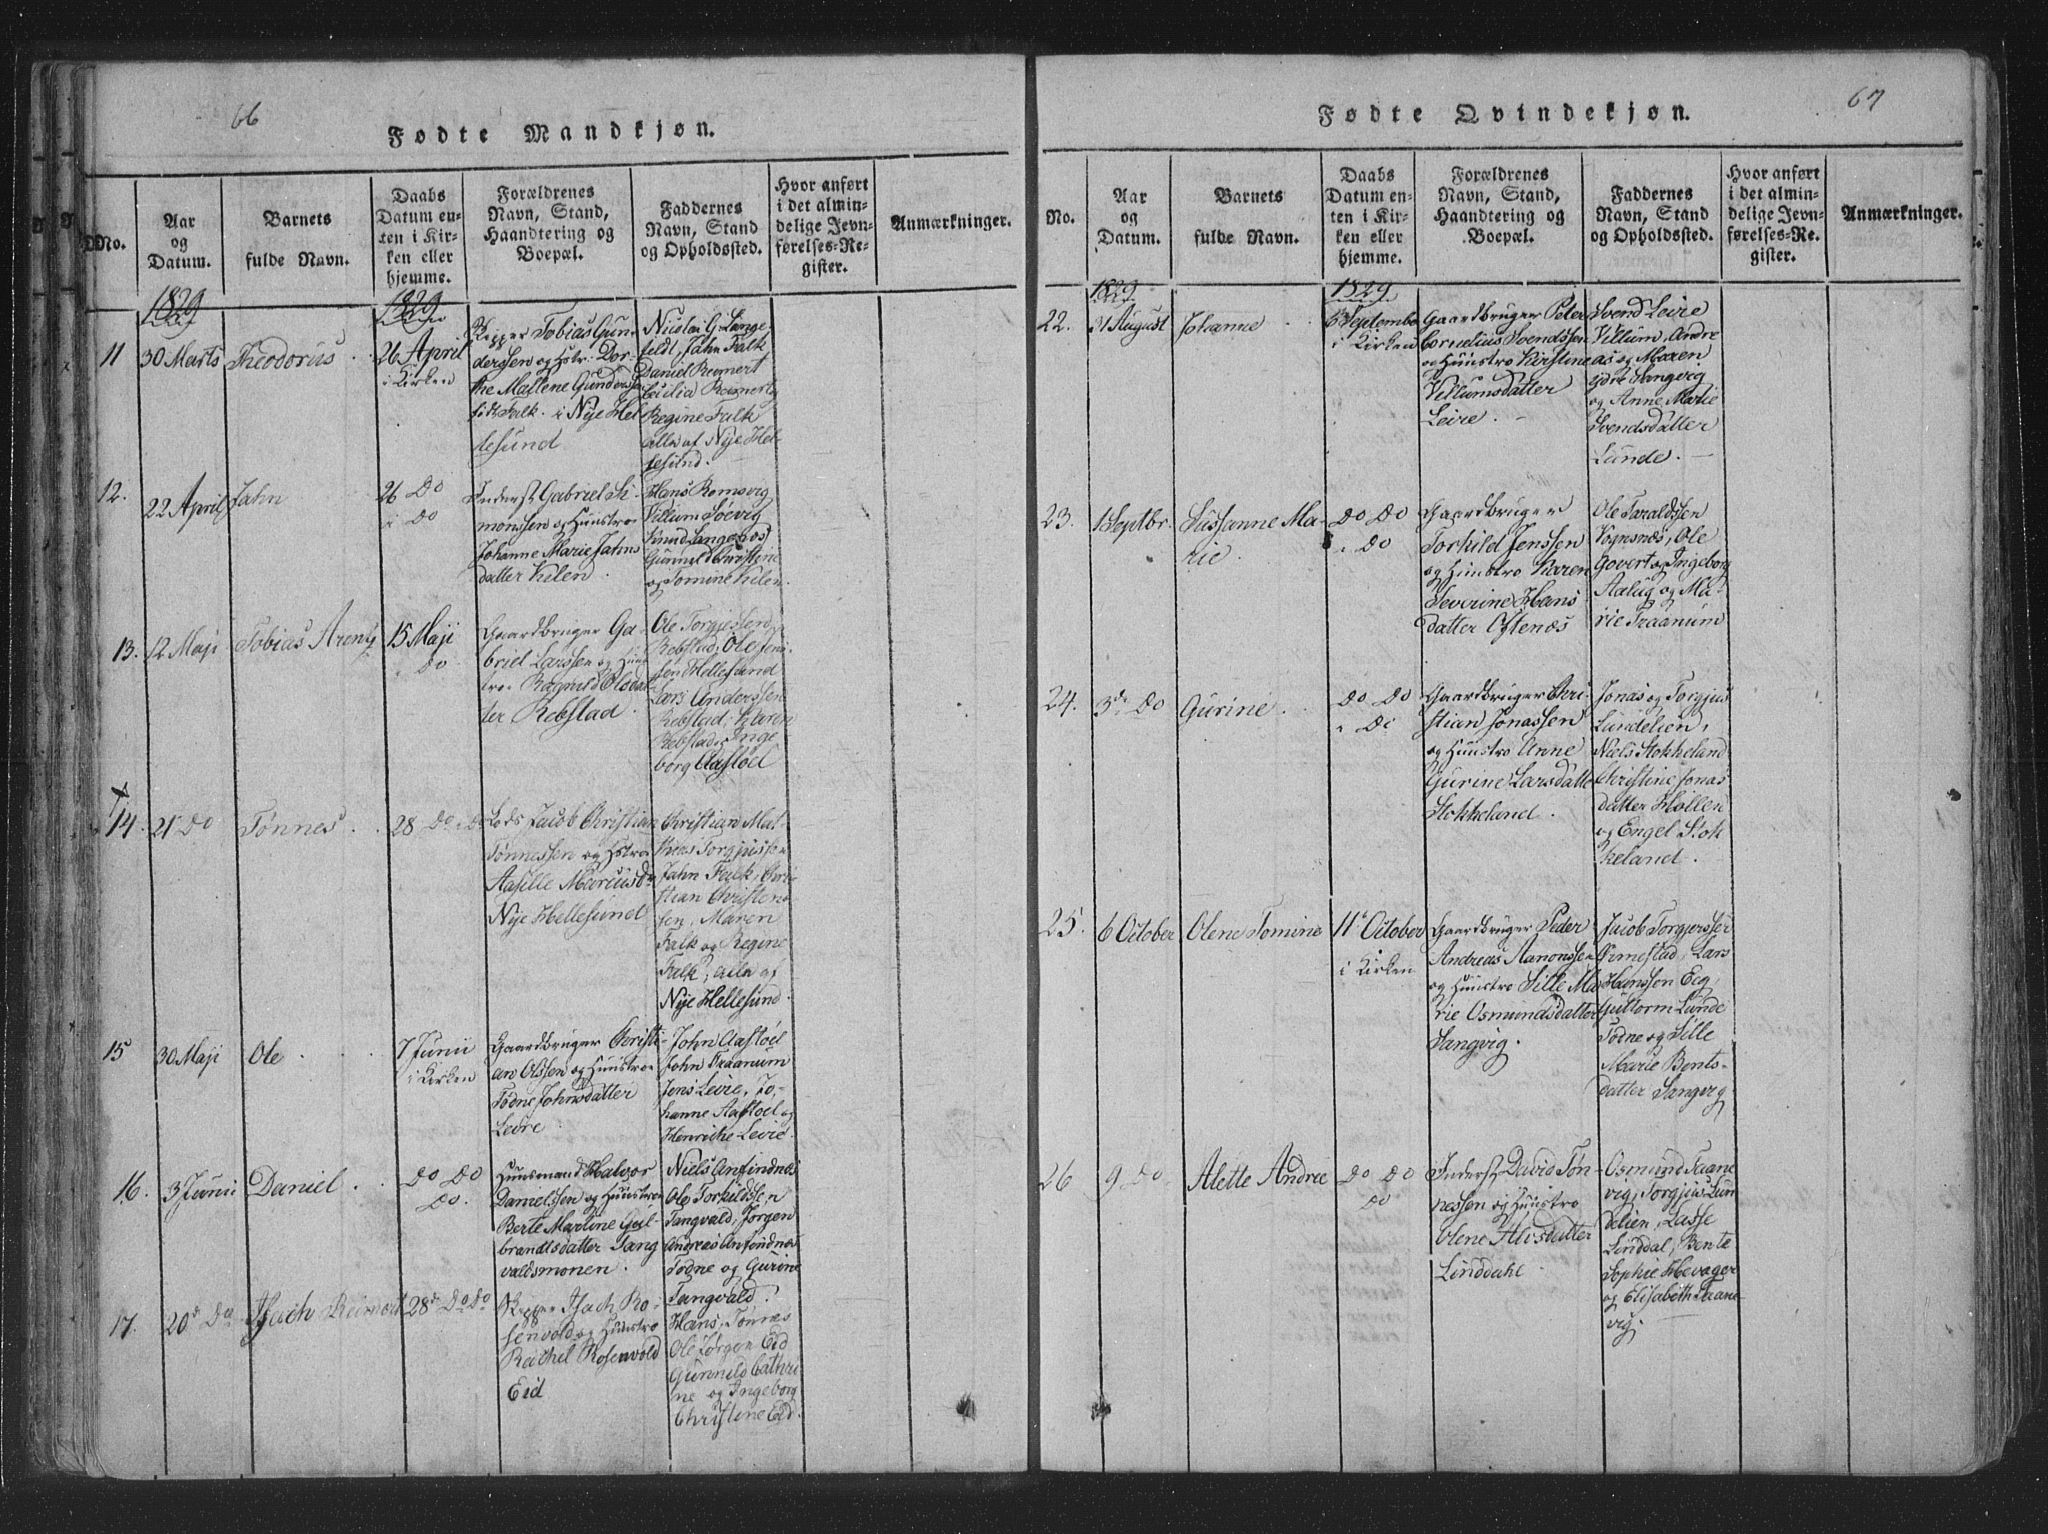 66
Fødte Mandkjøn.
No.
Aar
og
Datum.
Barnets
fulde Navn.
Daabs
Datum en-
ten i Kir-
ken eller
hjemme.
Forældrenes
Navn, Stand,
Haandtering og
Boepæl.
Faddernes
Navn, Stand
og Opholdssted.
Hvor anført
i det almin-
delige Jevn-
førelses-Re-
gister.
Anmærkninger.
1829
1829
11
30 Marts
Theodorus
26 April
i Kirken
Skipper Tobias Gun-
derssen og Hstr. Dor-
the Mallene Gunders
Falk. i Nye Hel
lesund
Nicolai G. Lange
feldt, Jahn Falk
Daniel Reimert
Cecilia Reimert
Regine Falk
alle af Nye Hel-
lesund.
12.
22 April
Jahn
26 Do
i Do
Inderst Gabriel Si-
monssen og Huustroe
Johanne Marie Jahns
datter Kilen.
Hans Romsvig
Villum Søevig
Knud Langenæs
Gunnild Christine
og Tomine Kilen.
13.
12 Maji
Tobias Arent
15 Maji
Do
Gaardbruger Ga-
briel Larssen og Huus
troe Ragnild Olsdat
ter Rebstad.
Ole Torgiesen
Rebstad, Ole Jens-
sen Hellesund
Lars Anderssen
Rebstad, Karen
Rebstad, Inge
borg Aastøel
14.
21 Do
Tønnes
28 Do. Do
Lods Jacob Christian
Tønnessen og Hstroe
Aasille Marcusd.
Nye Hellesund
Christian Mat-
hias Torgjussen
Jahn Falk, Chri-
stian Christens-
sen, Maren
Falk og Regine
Falk, alle af
Nye Hellesund.
15
30 Maji
Ole
7 Junii
i Kirken
Gaardbruger Christi-
an Olssen og Huustroe
Tødne Johnsdatter
Leire
John Aastøel
John Traanum
Jens Leire, Jo-
hanne Aastøel og
Henricke Leire.
16.
3 Junii
Daniel
Do Do
Do.
Huusmand Halvor
Danielssen og Huustroe
Berte Martine Gul-
brandtsdatter Tang
valdsmonen.
Niels Anfindnæs
Ole Torkildssen
Tangvald, Jørgen
Andreas Anfindnæs
Tødne og Gurine
Tangvald.
17.
20de Do
Isach Reimert
28de Do Do
Skipper Isach Ro-
senvold og Huustro
Rachel Rosenvold
Eid
Hans, Tønnes
Ole Jørgen Eid
Gunnild Cathri
ne og Ingeborg
Christine Eid.
67
Fødte Qvindekjøn.
No.
Aar
og
Datum.
Barnets
fulde Navn.
Daabs
Datum en-
ten i Kir-
ken eller
hjemme.
Forældrenes
Navn, Stand,
Haandtering og
Boepæl.
Faddernes
Navn, Stand
og Opholdssted.
Hvor anført
i det almin-
delige Jevn-
førelses-Re-
gister.
Anmærkninger.
1829
1829.
22.
31 August
Johanne
6 Septembr
i Kirken
Gaardbruger Peter
Cornelius Svendssen
og Huustro Kirstine
Villumsdatter
Leire.
Svend Leire
Villum, Andre
as og Maren
Sangvig
og Anne Marie
Svendsdatter
Lunde.
23.
1 Septbr.
Sussanne Ma-
rie.
Do Do
Do
Gaardbruger
Torkild Jenssen
og Huustro Karen
Severine Hans
datter Ostenæs
Ole Taraldssen
Vognsnæs, Ole
Govert og Ingeborg
Aalug og Ma-
rie Traanum
24.
3de Do
Gurine
Do Do
Do
Gaardbruger Chri-
stian Jonassen
og Huustro Anne
Gurine Larsdatter
Stokkeland.
Jonas og Torgjus
Lundelien,
Niels Stokkeland
Christine Jonas
datter Hollen
og Engel Stok
keland.
25.
6 October
Olene Tomine
11te October
i Kirken
Gaardbruger Peder
Andreas Aanonssen
og Huustro Sille Ma
rie Osmundsdatter
Sangvig.
Jacob Torgjerssen
Urmestad, Lars
Hanssen Eeg,
Guttorm Lunde
Tødne og Sille
Marie Bents-
datter Sangvig
26
9 Do
Alette Andrea
Do Do
Do
Inderst David Tøn-
nessen og Huustro
Olene Alvsdatter
Linddahl.
Osmund Taane
vig, Torgjus Lun
delien, Lasse
Linddal, Bente
Sophie Hevager
og Elisabeth Taane
vig.